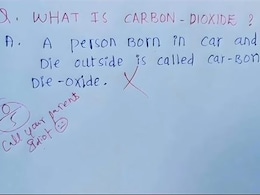 Q. WHAT IS CARBON-DIOXIDE ?
A. A PERSON BORN IN CAR AND
DIE OUTSIDE IS CALLED CAR-BON
DIE-OXIDE.
0
5
Call your parents
Idiot